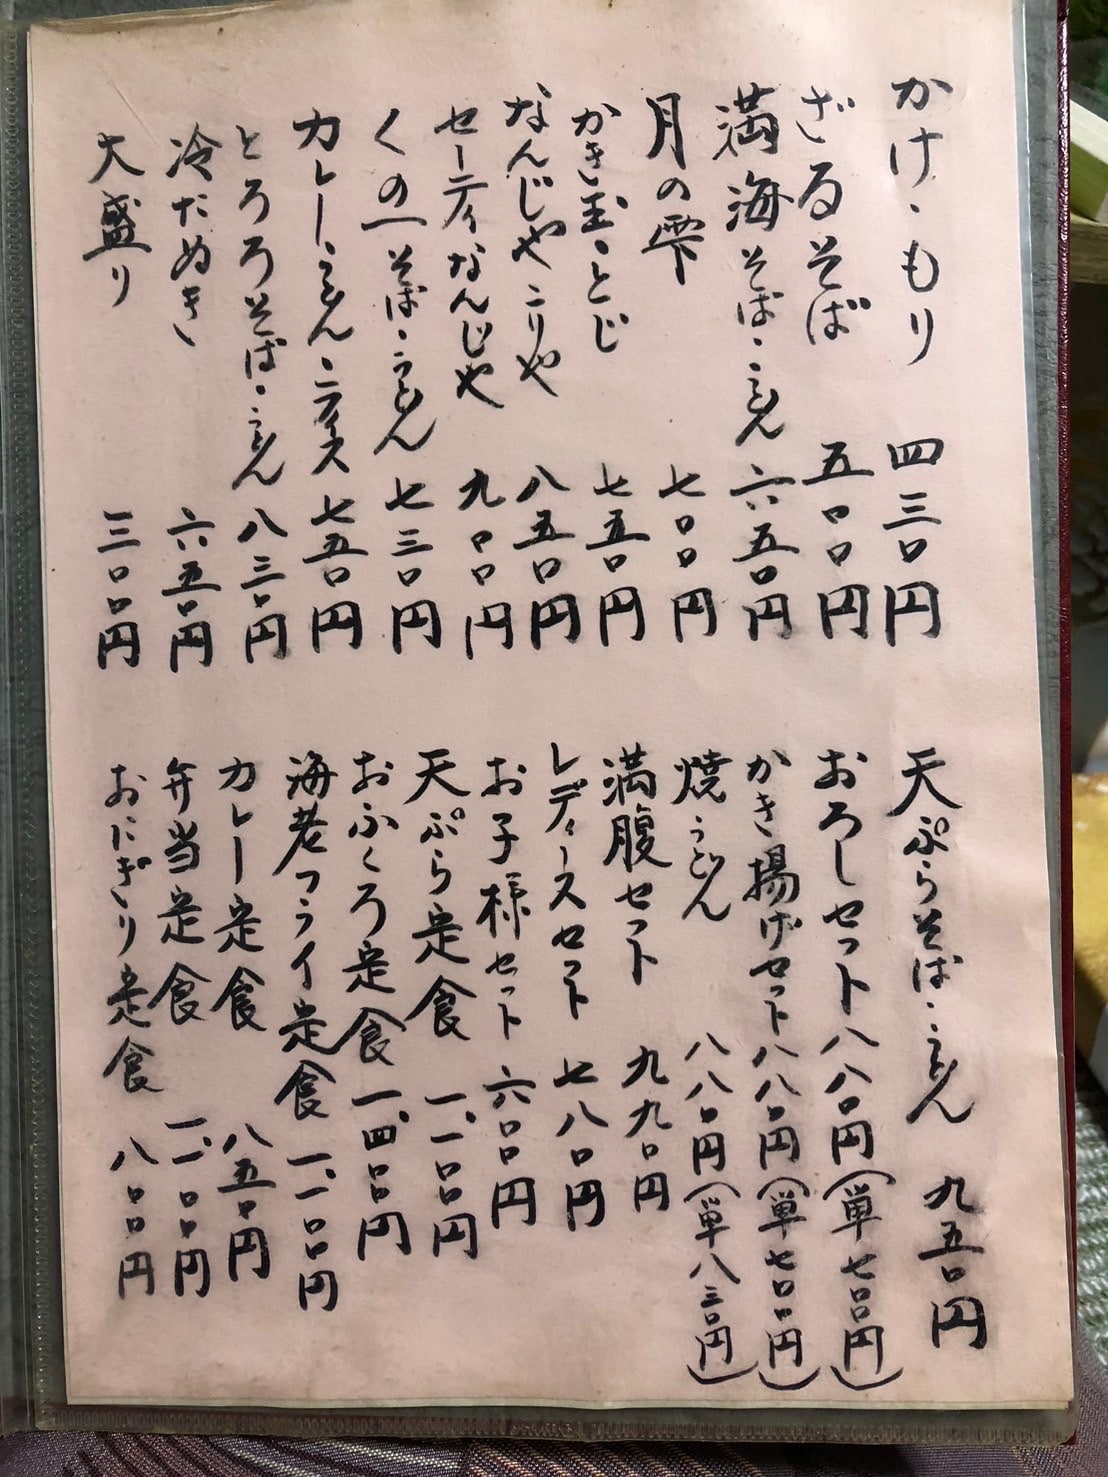 かけ・もり 四三〇円
ざるそば 五〇〇円
満海そば・うどん 六五〇円
月の雫 七〇〇円
かき玉・とじ 七五〇円
なんじゃこりゃ 八五〇円
セーティなんじゃ 九〇〇円
くの一そば・うどん 七三〇円
カレーうどん・ライス 七五〇円
とろろそば・うどん 八三〇円
冷たぬき 六五〇円
大盛り 三〇〇円
天ぷらそば・うどん 九五〇円
おろしセット 八八〇円(単七〇〇円)
かき揚げセット 八八〇円(単七〇〇円)
焼うどん 八八〇円(単八三〇円)
満腹セット 九九〇円
レディースセット 七八〇円
お子様セット 六〇〇円
天ぷら定食 一、一〇〇円
おふくろ定食 一、四〇〇円
海老フライ定食 一、一〇〇円
カレー定食 八五〇円
弁当定食 一、一〇〇円
おにぎり定食 八〇〇円